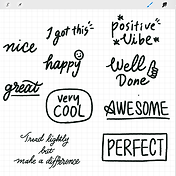 nice
I got this
happy
great
very
COOL
Tread lightly
but
make a difference
positive
Vibe
Well
Done
AWESOME
PERFECT